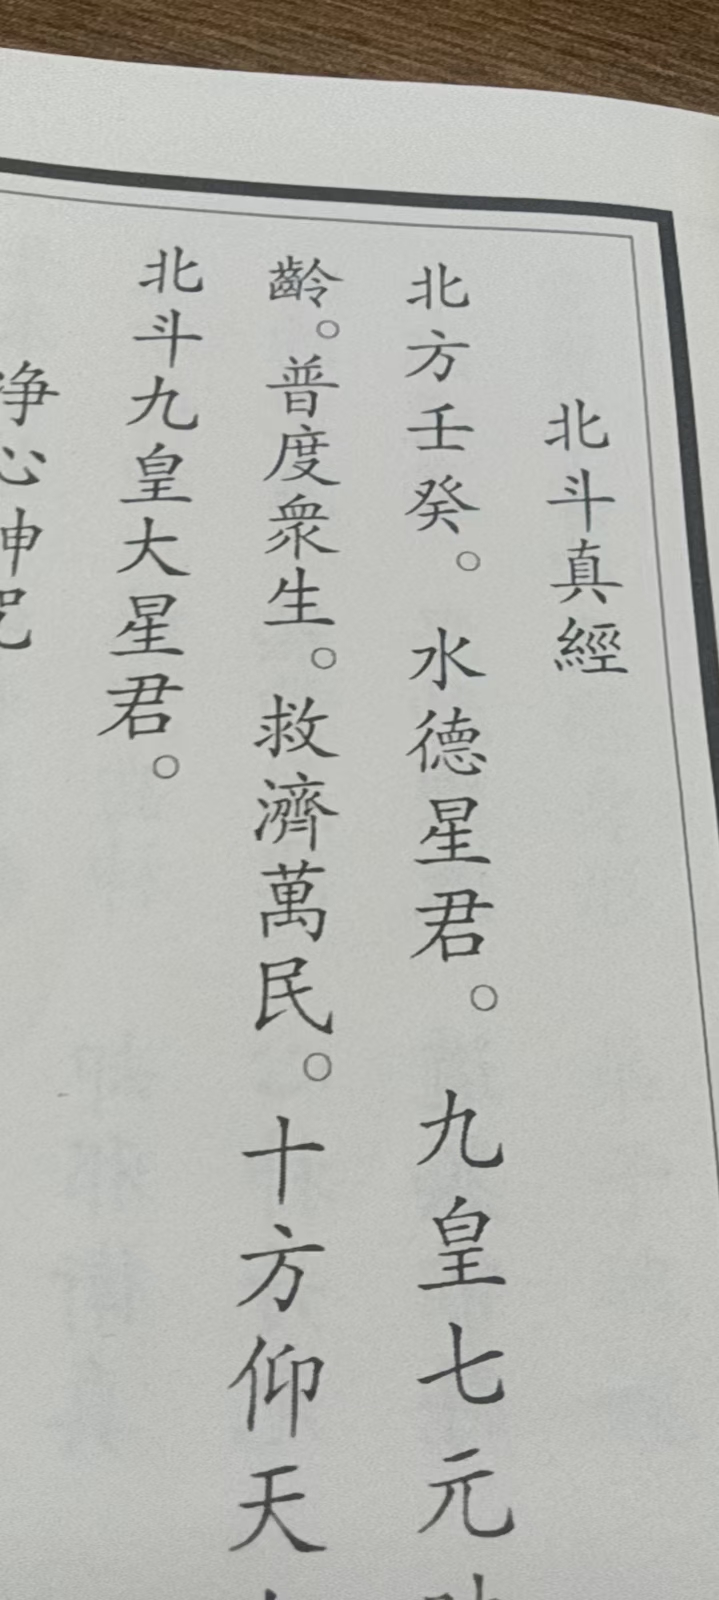 北斗真經
北方壬癸。水德星君。九皇七元
齡。普度衆生。救濟萬民。十方仰天
北斗九皇大星君。
淨心神咒